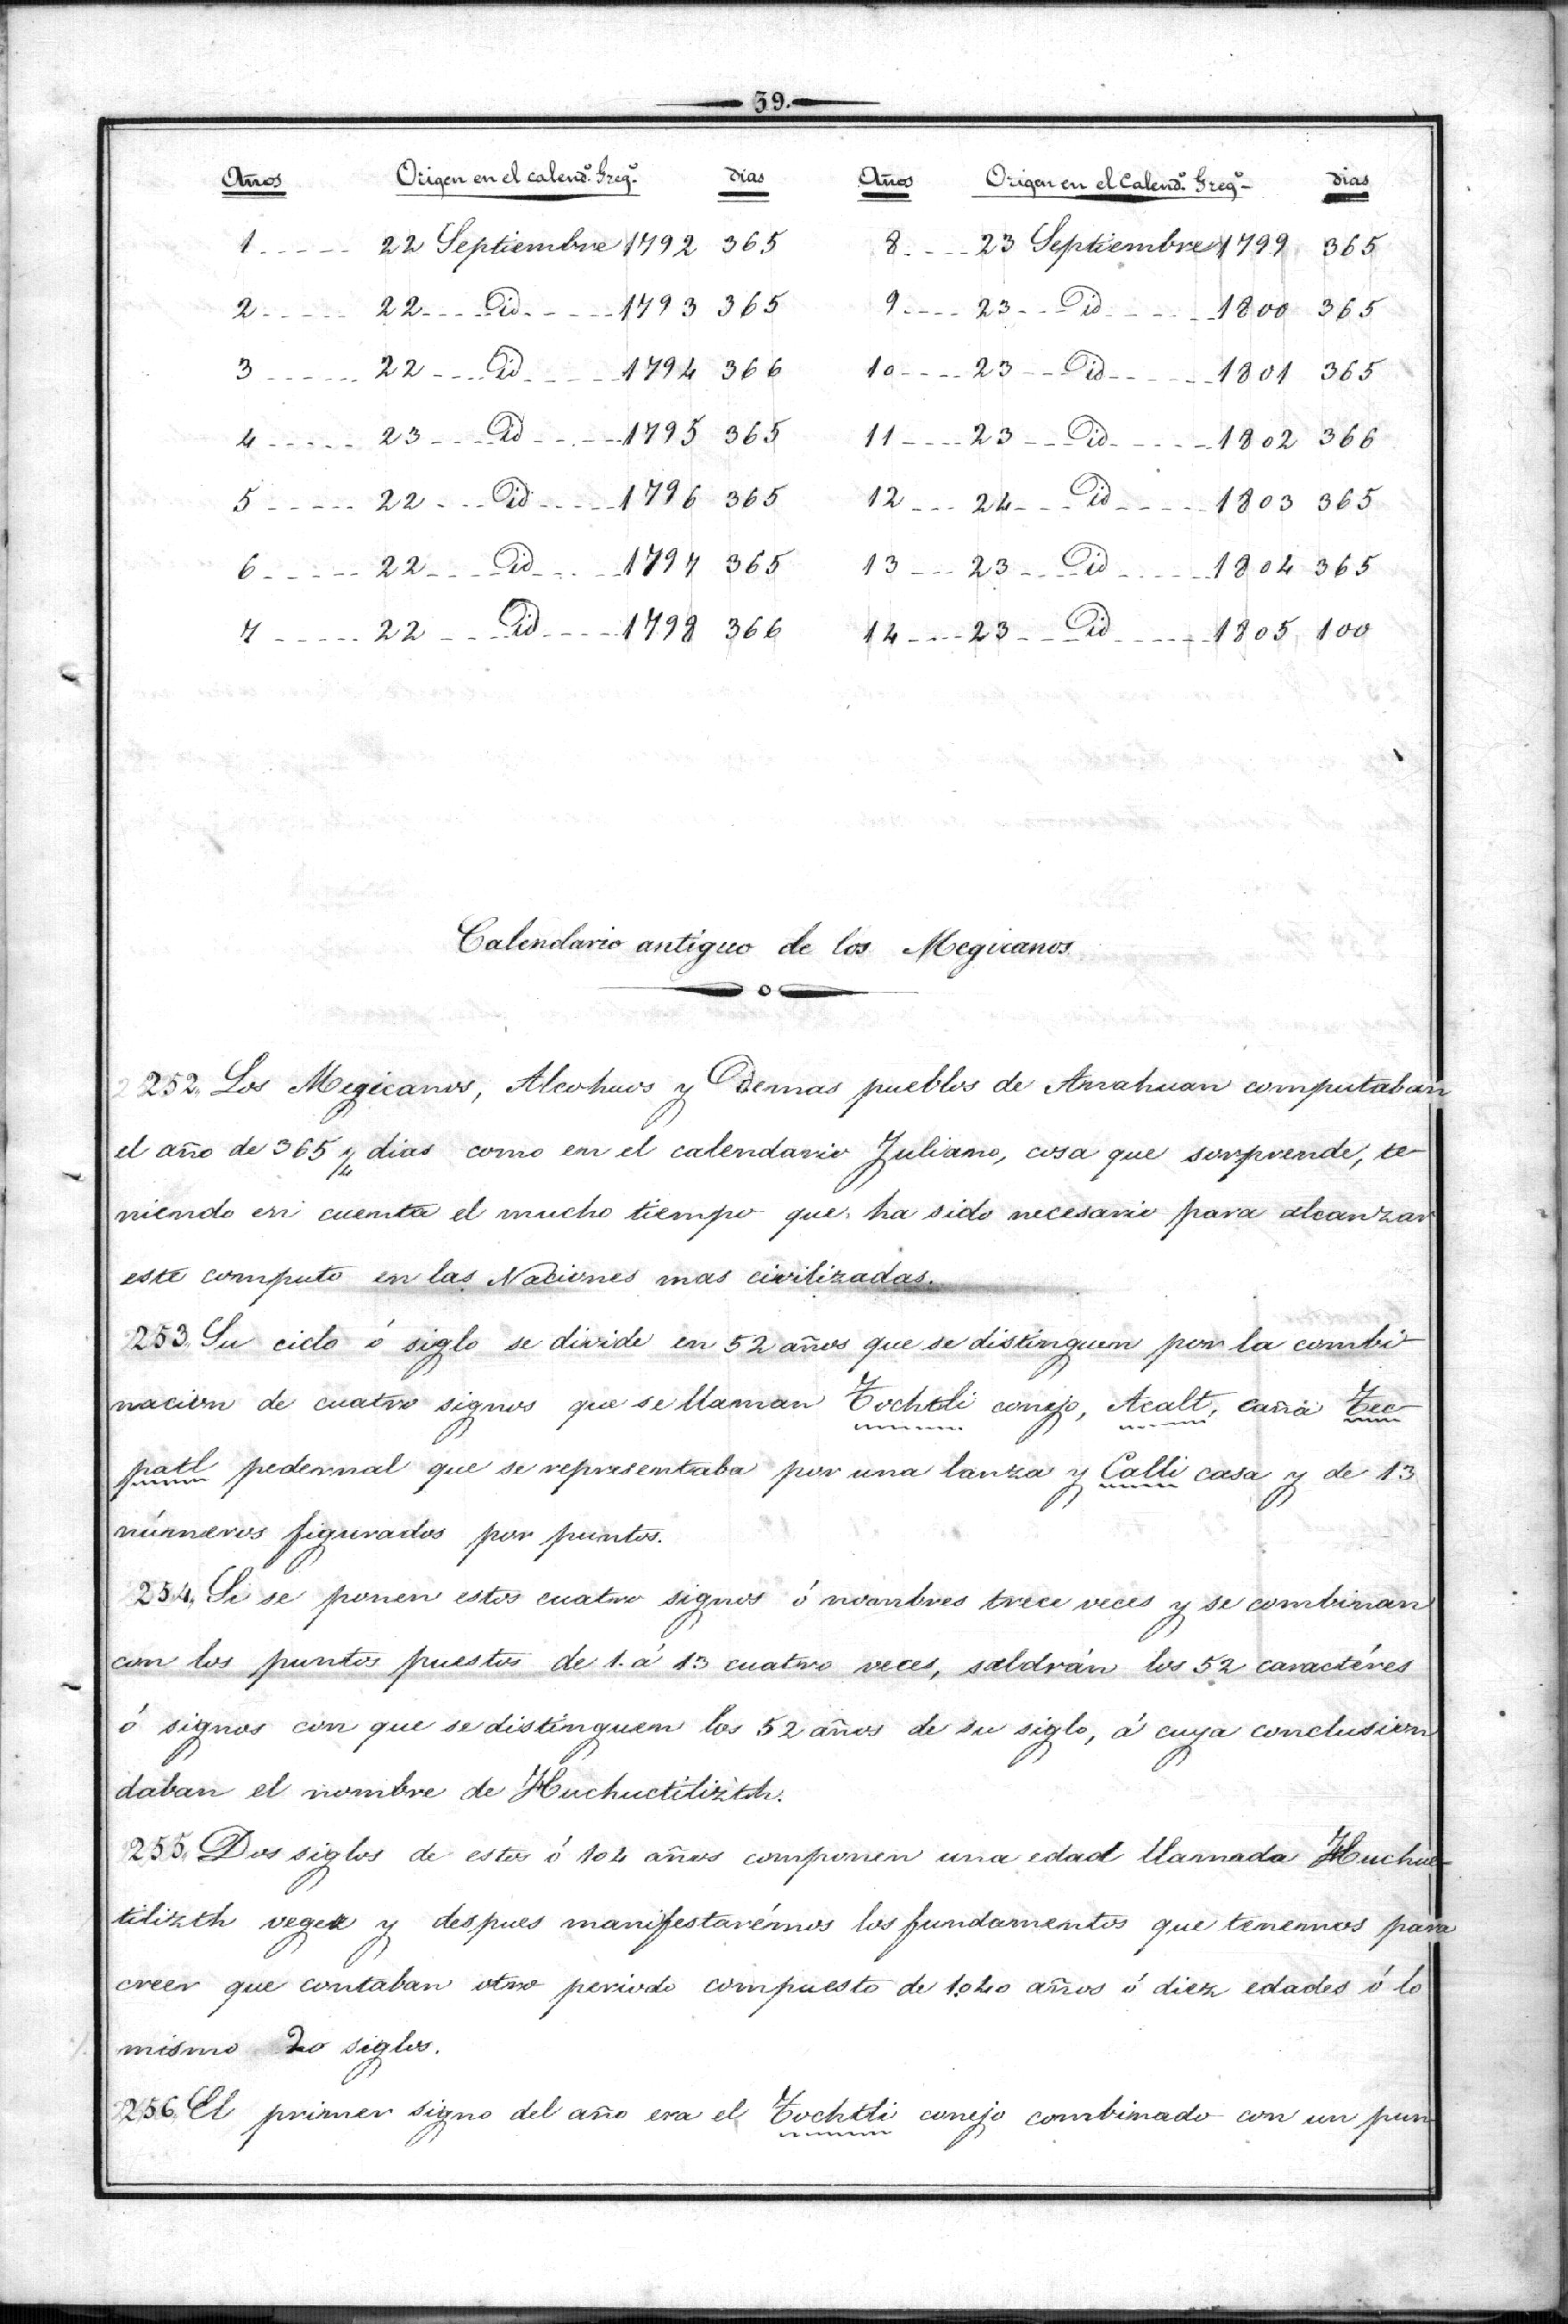 39.
Años Origen en el calend.º Greg.º dias Años Origen en el Calend.º Greg.º dias
1 22 Septiembre 1792 365 8 23 Septiembre 1799 365
2 22 id 1793 365 9 23 id 1800 365
3 22 id 1794 366 10 23 id 1801 365
4 23 id 1795 365 11 23 id 1802 366
5 22 id 1796 365 12 24 id 1803 365
6 22 id 1797 365 13 23 id 1804 365
7 22 id 1798 366 14 23 id 1805 100
Calendario antiguo de los Megicanos
252. Los Megicanos, Alcohuos y demas pueblos de Anahuan computaban
el año de 365 1/4 dias como en el calendario Juliano, cosa que sorprende, te-
niendo en cuenta el mucho tiempo que ha sido necesario para alcanzar
este computo en las Naciones mas civilizadas.
253. Su ciclo ó siglo se divide en 52 años que se distinguen por la combi-
nacion de cuatro signos que se llaman Tochtli conejo, Acalt, caña Tec-
patl pedernal que se representaba por una lanza y Calli casa y de 13
números figurados por puntos.
254. Si se ponen estos cuatro signos ó nombres trece veces y se combinan
con los puntos puestos de 1. á 13 cuatro veces, saldrán los 52 caractéres
ó signos con que se distinguen los 52 años de su siglo, á cuya conclusion
daban el nombre de Huchuctilizth.
255. Dos siglos de estos ó 104 años componen una edad llamada Huchue-
tilizth vegez y despues manifestarémos los fundamentos que tenemos para
creer que contaban otro periodo compuesto de 1.040 años ó diez edades ó lo
mismo 20 siglos.
256. El primer signo del año era el Tochtli conejo combinado con un pun-